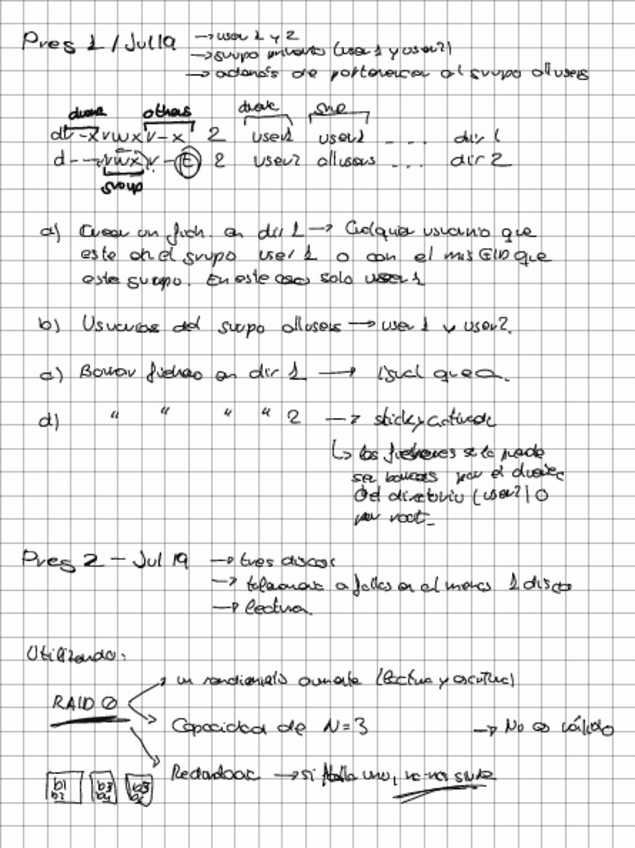 Preg 1 / Jul19 → user 1 y 2
→ grupo privado (user 1 y user2)
→ además de pertenecer al grupo allusers
dueño others dueño grupo
dr-xrwxr-x 2 user1 user1 ... dir 1
d---rwxr-t 2 user2 allusers ... dir 2
grupo
a) Crear un fich. en dir 1 → Cualquier usuario que
este en el grupo user 1 o con el mis GID que
este grupo. En este caso solo user 1
b) Usuarios del grupo allusers → user 1 y user2.
c) Borrar ficheros en dir 1 → igual que a.
d) " " " " 2 → sticky activar
↳ los ficheros se puede
ser por el dueño
del directorio (user2) o
por root_
Preg 2 - Jul 19 → tres discos
→ tolerancia a fallos en al menos 1 disco
→ lectura.
Utilizando:
RAID 0
un rendimiento aumente (lectura y escritura)
Capacidad de N=3 → No es válido
Redundancia → si falla uno, no nos sirve
b1 b3 b5
b2 b4 b6